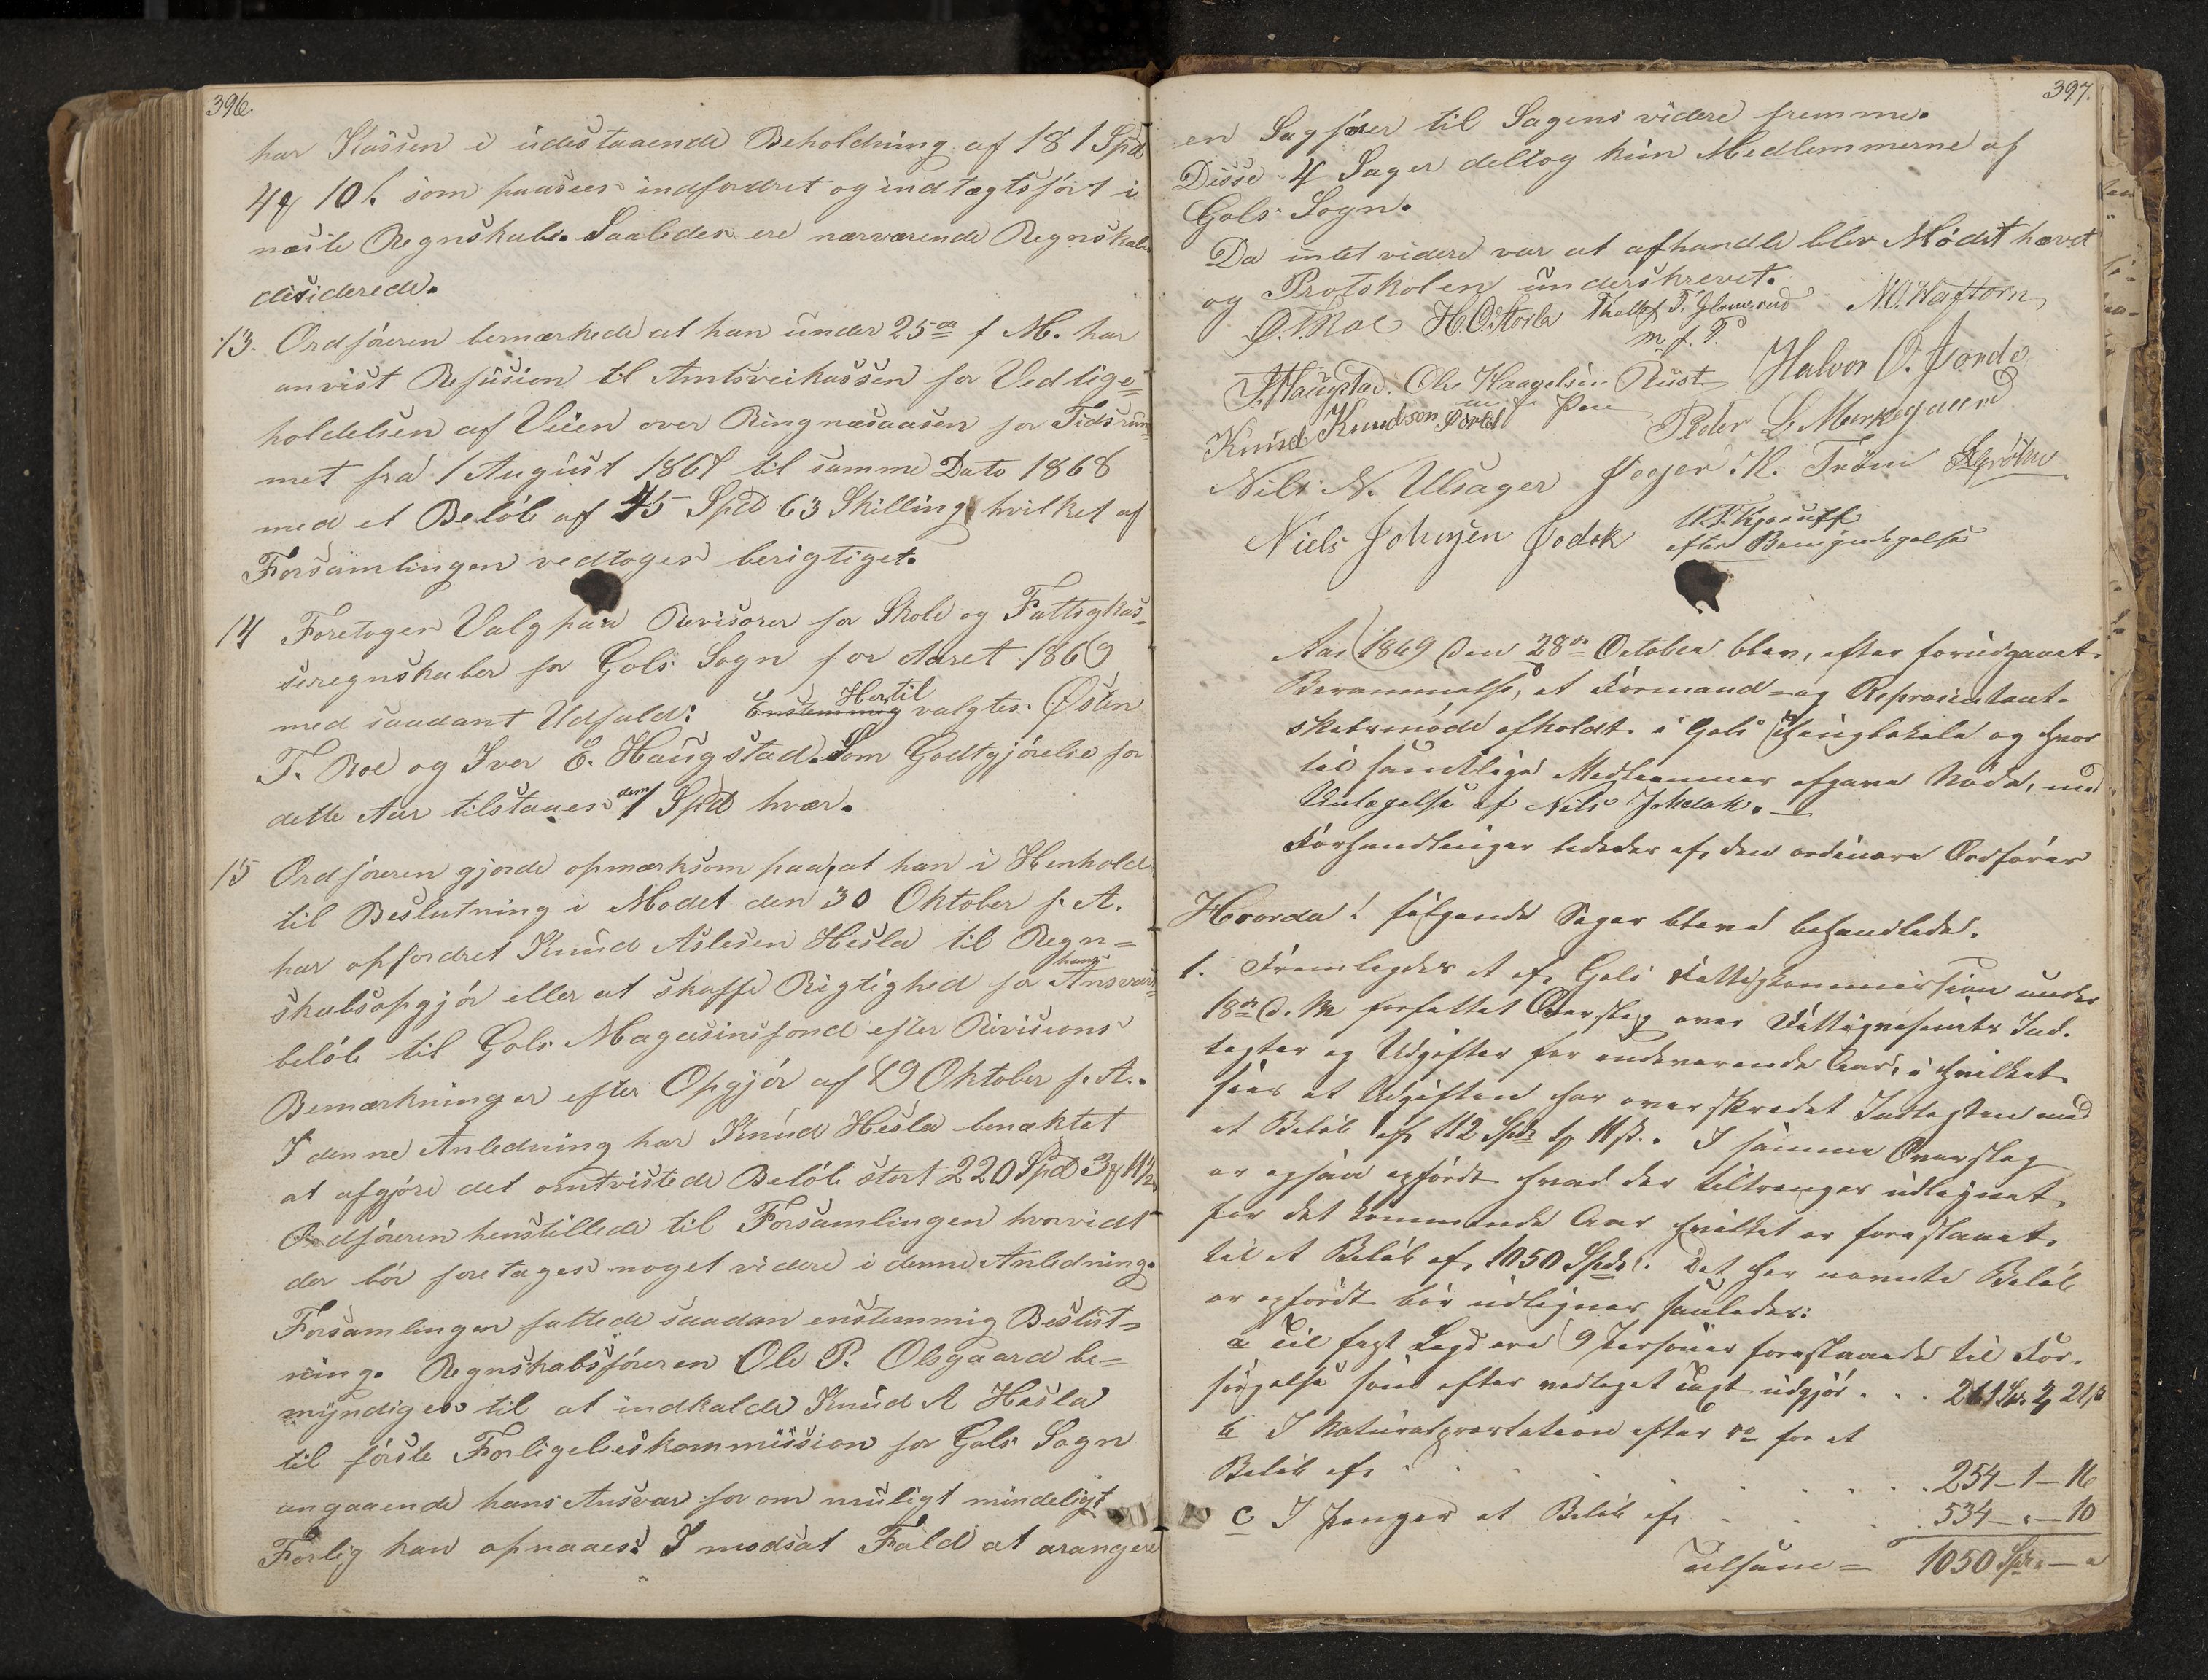 396.
har Kassen i udestaaende Beholdning af 181 Spd
4 # 10 s. som paasees indfordret og indtægtsført i
næste Regnskab. Saaledes ere nærværende Regnskab
desiderede.
13. Ordføreren bemærkede at han under 25de f. M. har
anvist Refusion til Amtsveikassen for Vedlige=
holdelsen af Veien over Ringnæsaasen for Tidsrum
met fra 1 August 1867 til samme Dato 1868
med et Beløb af 45 Spd 63 Skilling, hvilket af
Forsamlingen vedtoges berigtiget.
14 Foretoges Valg paa Revisorer for Skole og Fattigkas=
seregnskaber for Gols Sogn for Aaret 1869
med saadant Udfald: Enstemmig Hertil valgtes Østen
T. Roe og Iver E. Haugstad. Som Godtgjørelse for
dette Aar tilstaaes dem 1 Spd hver.
15 Ordføreren gjorde opmærksom paa, at han i Henhold
til Beslutning i Mødet den 30 Oktober f. A.
har opfordret Knud Aslesen Hesla til Regn=
skabsopgjør eller at skaffe Rigtighed for hans Ansvars
beløb til Gols Magasinsfond efter Revisions
Bemærkninger efter Opgjør af 19 Oktober f. A.
I denne Anledning har Knud Hesla benægtet
at afgjøre det omtvistede Beløb stort 220 Spd 3 # 11½
Ordføreren henstillede til Forsamlingen hvorvidt
der bør foretages noget videre i denne Anledning.
Forsamlingen fattede saadan enstemmig Beslut=
ning. Regnskabsføreren Ole P. Olsgaard be=
myndiges til at indkalde Knud A Hesla
til første Forligelseskommission for Gols Sogn
angaaende hans Ansvar for om muligt mindeligt
Forlig kan opnaaes. I modsat Fald at arangere
397.
en Sagfører til Sagens videre fremme.
Disse 4 Sager deltog kun Medlemmerne af
Gols Sogn.
Da intet videre var at afhandle blev Mødet hævet
og Protokolen underskrevet.
Ø. T. Roe H. O. Storla Thollef T. Glomsrud
m. f. P.
Ole Haagelsen Rust Halvor O. Jorde
Knud Knudson Peder L. Merkegaard
Nils N. Ulsager K. Trøim
Niels Johnsen
efter Bemyndigelse
Aar 1869 den 28de October blev, efter forudgaaet
Berammelse, et Formand- og Repræsentant-
skabsmøde afholdt i Gols Thinglokale og hvor
til samtlige Medlemmer afgave Møde, med
Undtagelse af Nils
Forhandlinger lededes af den ordinære Ordfører
Hvorda: følgende Sager bleve behandlede.
1. Fremlagdes et af Gols Fattigkommission under
18de d. M forfattet Overslag over Fattigvæsenets Ind-
tægter og Udgifter for indeværende Aar, i hvilket
sees at Udgiften har overskredet Indtægten med
et Beløb af 112 Spd 1 # 11 s. I samme Overslag
er ogsaa opført hvad der tiltrænges udlignet
for det kommende Aar hvilket er foreslaaet
til et Beløb af 1050 Spd. Det her nævnte Beløb
er opført bør udlignes saaledes:
a Til fast Lægd ere 9 Personer foreslaaede til For-
sørgelse som efter vedtaget Taxt udgjør . . . 261 Spd. 3 # 21 s
b I Naturalpræstation efter do for et
Beløb af . . . . . . 254 – 1 – 16
c I Penger et Beløb af . . . . 534 – „ – 10
Tilsam = 1050 Spd „ – „